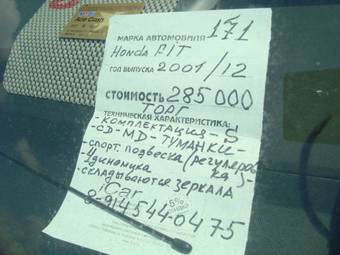 Ace Cash
171
МАРКА АВТОМОБИЛЯ
Honda FIT
ГОД ВЫПУСКА 2001/12
СТОИМОСТЬ 285 000
ТОРГ
ТЕХНИЧЕСКАЯ ХАРАКТЕРИСТИКА:
- КОМПЛЕКТАЦИЯ - S
- CD-MD- ТУМАНКИ -
- спорт. подвеска (регулеров
ка) -
- Удиномика
- складываются зеркала
iCar
8-914544-0475
5%